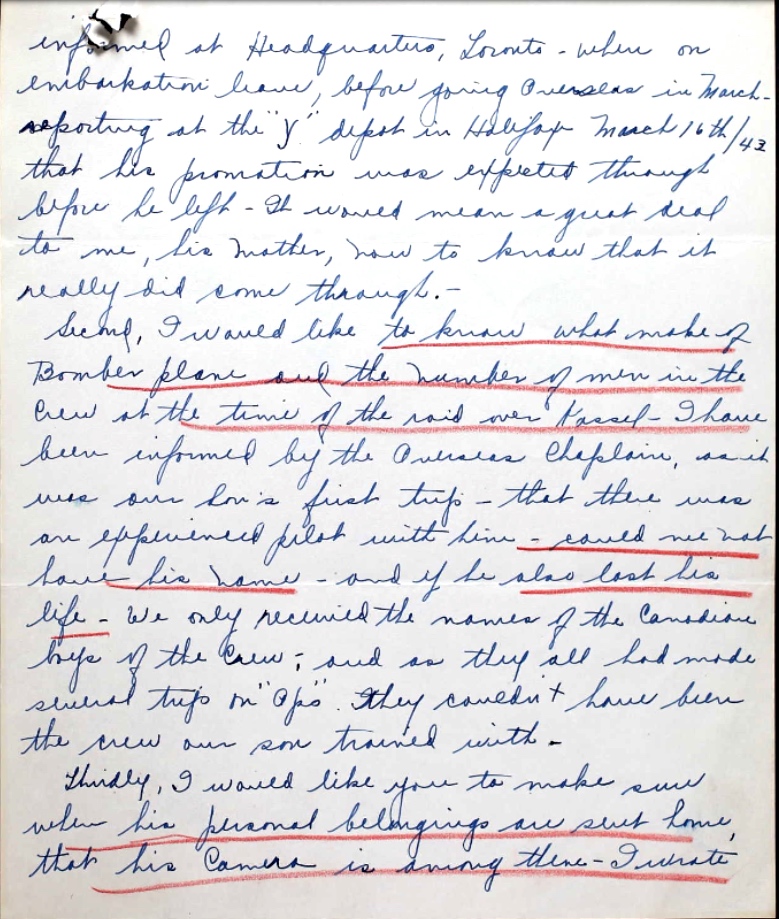 informed at Headquarters, Toronto - when on
embarkation leave, before going Overseas in March -
reporting at the "Y" depot in Halifax March 16th/43
that his promation was expected through
before he left - It would mean a great deal
to me, his Mother, now to know that it
really did come through. -
Second, I would like to know what make of
Bomber plane and the number of men in the
Crew at the time of the raid over Kassel - I have
been informed by the Overseas Chaplain, as it
was our Son's first trip - that there was
an experienced pilot with him - could we not
have his name - and if he also lost his
life - We only received the names of the Canadian
boys of the Crew; and as they all had made
several trips on "Ops". They couldn't have been
the crew our son trained with -
Thirdly, I would like you to make sure
when his personal belongings are sent home,
that his Camera is among them - I wrote